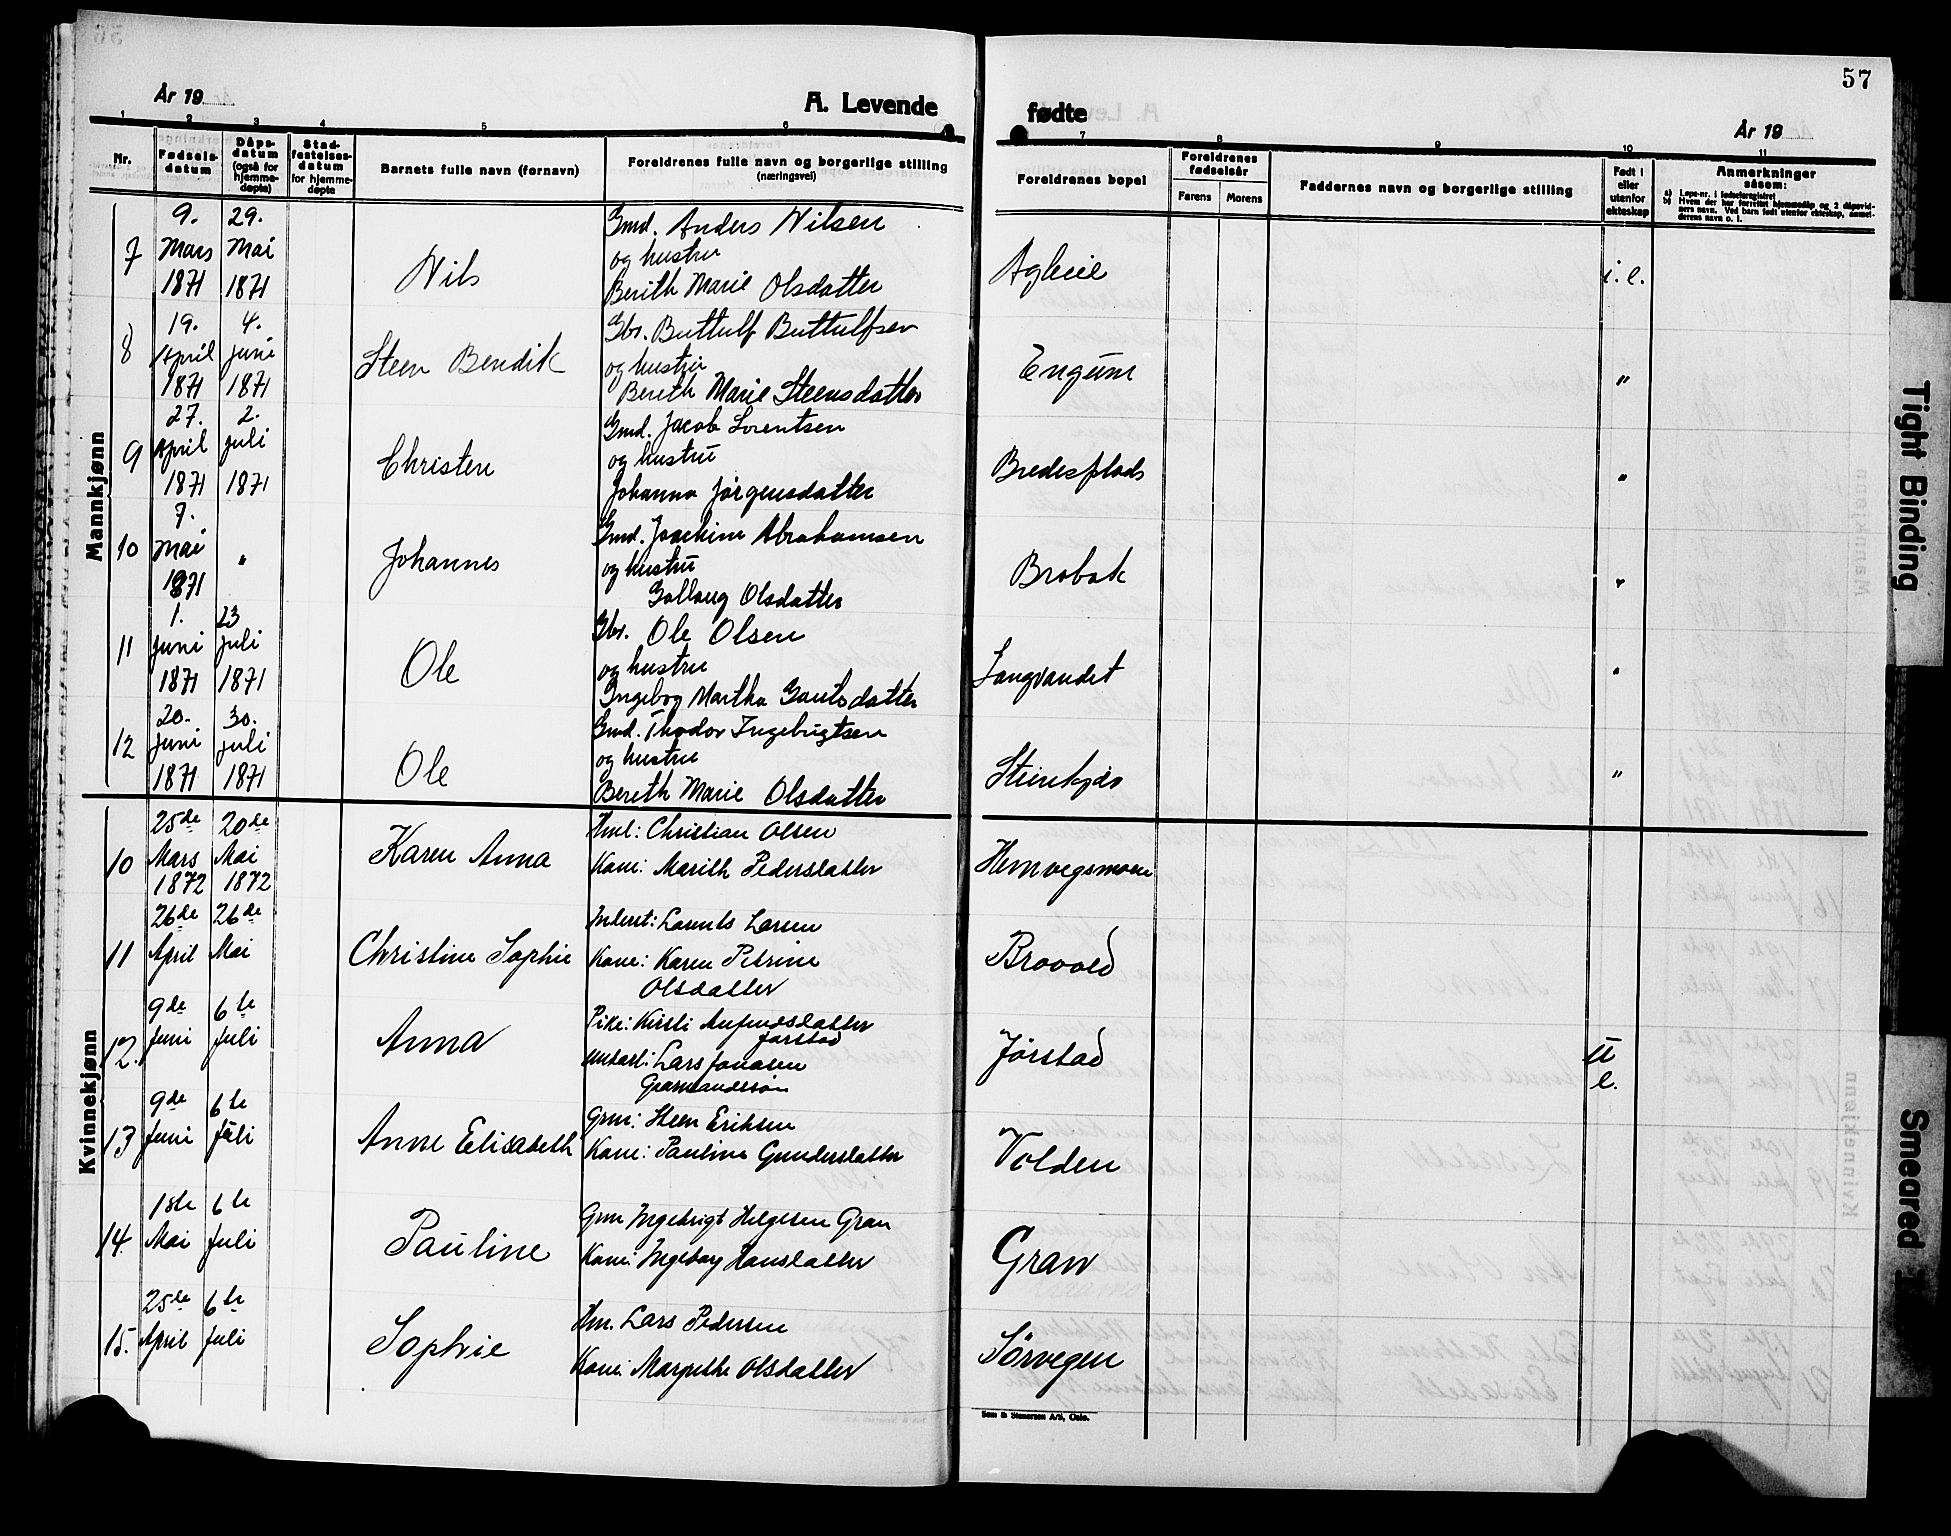 57
År 19
A. Levende
fødte
År 19
1 2 3 4 5 6 7 8 9 10 11
Nr.
Fødsels-
datum
Dåps-
datum
(også for
hjemme-
døpte)
Stad-
festelses-
datum
for hjemme-
døpte
Barnets fulle navn (fornavn)
Foreldrenes fulle navn og borgerlige stilling
(næringsvei)
Foreldrenes bopel
Foreldrenes
fødselsår
Farens
Morens
Faddernes navn og borgerlige stilling
Født i
eller
utenfor
ekteskap
Anmerkninger
såsom:
a) Løpe-nr. i fødselsregistret
b) Hvem der har forrettet hjemmedåp og 2 dåpsvid-
ners navn. Ved barn født utenfor ekteskap, anmel-
derens navn o. l.
Mannkjønn
7
9. Mars 1871
29. Mai 1871
Nils
Gmd. Anders Nilsen
og hustru
Berith Marie Olsdatter
Agleie
i. e.
8
19. April 1871
4. juni 1871
Steen Bendik
Gbr. Buttulf Buttulfsen
og hustru
Bereth Marie Steensdatter
Engum
"
9
27. April 1871
2. juli 1871
Christen
Gmd. Jacob Lorentsen
og hustru
Johanna Jørgensdatter
Bredesplads
"
10
7. Mai 1871
"
Johannes
Gmd. Joachim Abrahamsen
og hustru
Gollaug Olsdatter
Brobak
"
11
1. juni 1871
23 juli 1871
Ole
Gbr. Ole Olsen
og hustru
Ingebog Martha Gautsdatter
Langvandet
"
12
20. juni 1871
30. juli 1871
Ole
Gmd. Thodor Ingebrigtsen
og hustru
Bereth Marie Olsdatter
Steinkjær
"
Kvinnekjønn
10
25de Mars 1872
20de Mai 1872
Karen Anna
Christian Olsen
Kone: Marith Pedersdatter
Hemvegsmoen
11
26de April
26de Mai
Christine Sophie
Inderst: Larsen
Kone: Karen Petrine
Olsdatter
Brovold
12.
9de Juni
6te Juli
Anna
Pike: Kirsti Arfindsdatter
Jørstad
Unkarl: Lars Jonasen
Jørstad
u
e.
13
9de Juni
6te Juli
Anne Elisabeth
Grm: Steen Eriksen
Kone: Pauline Gundersdatter
Volden
14.
18te Mai
6te Juli
Pauline
Grm Ingebrigt Helgesen Gran
Kone: Ingeborg Hansdatter
Gran
15.
25de April
6te Juli
Sophie
Hm. Lars Pedersen
Kone: Margrethe Olsdatter
Sørvegen
Sem & Stenersen A/S, Oslo.
Tight Binding
Smeared